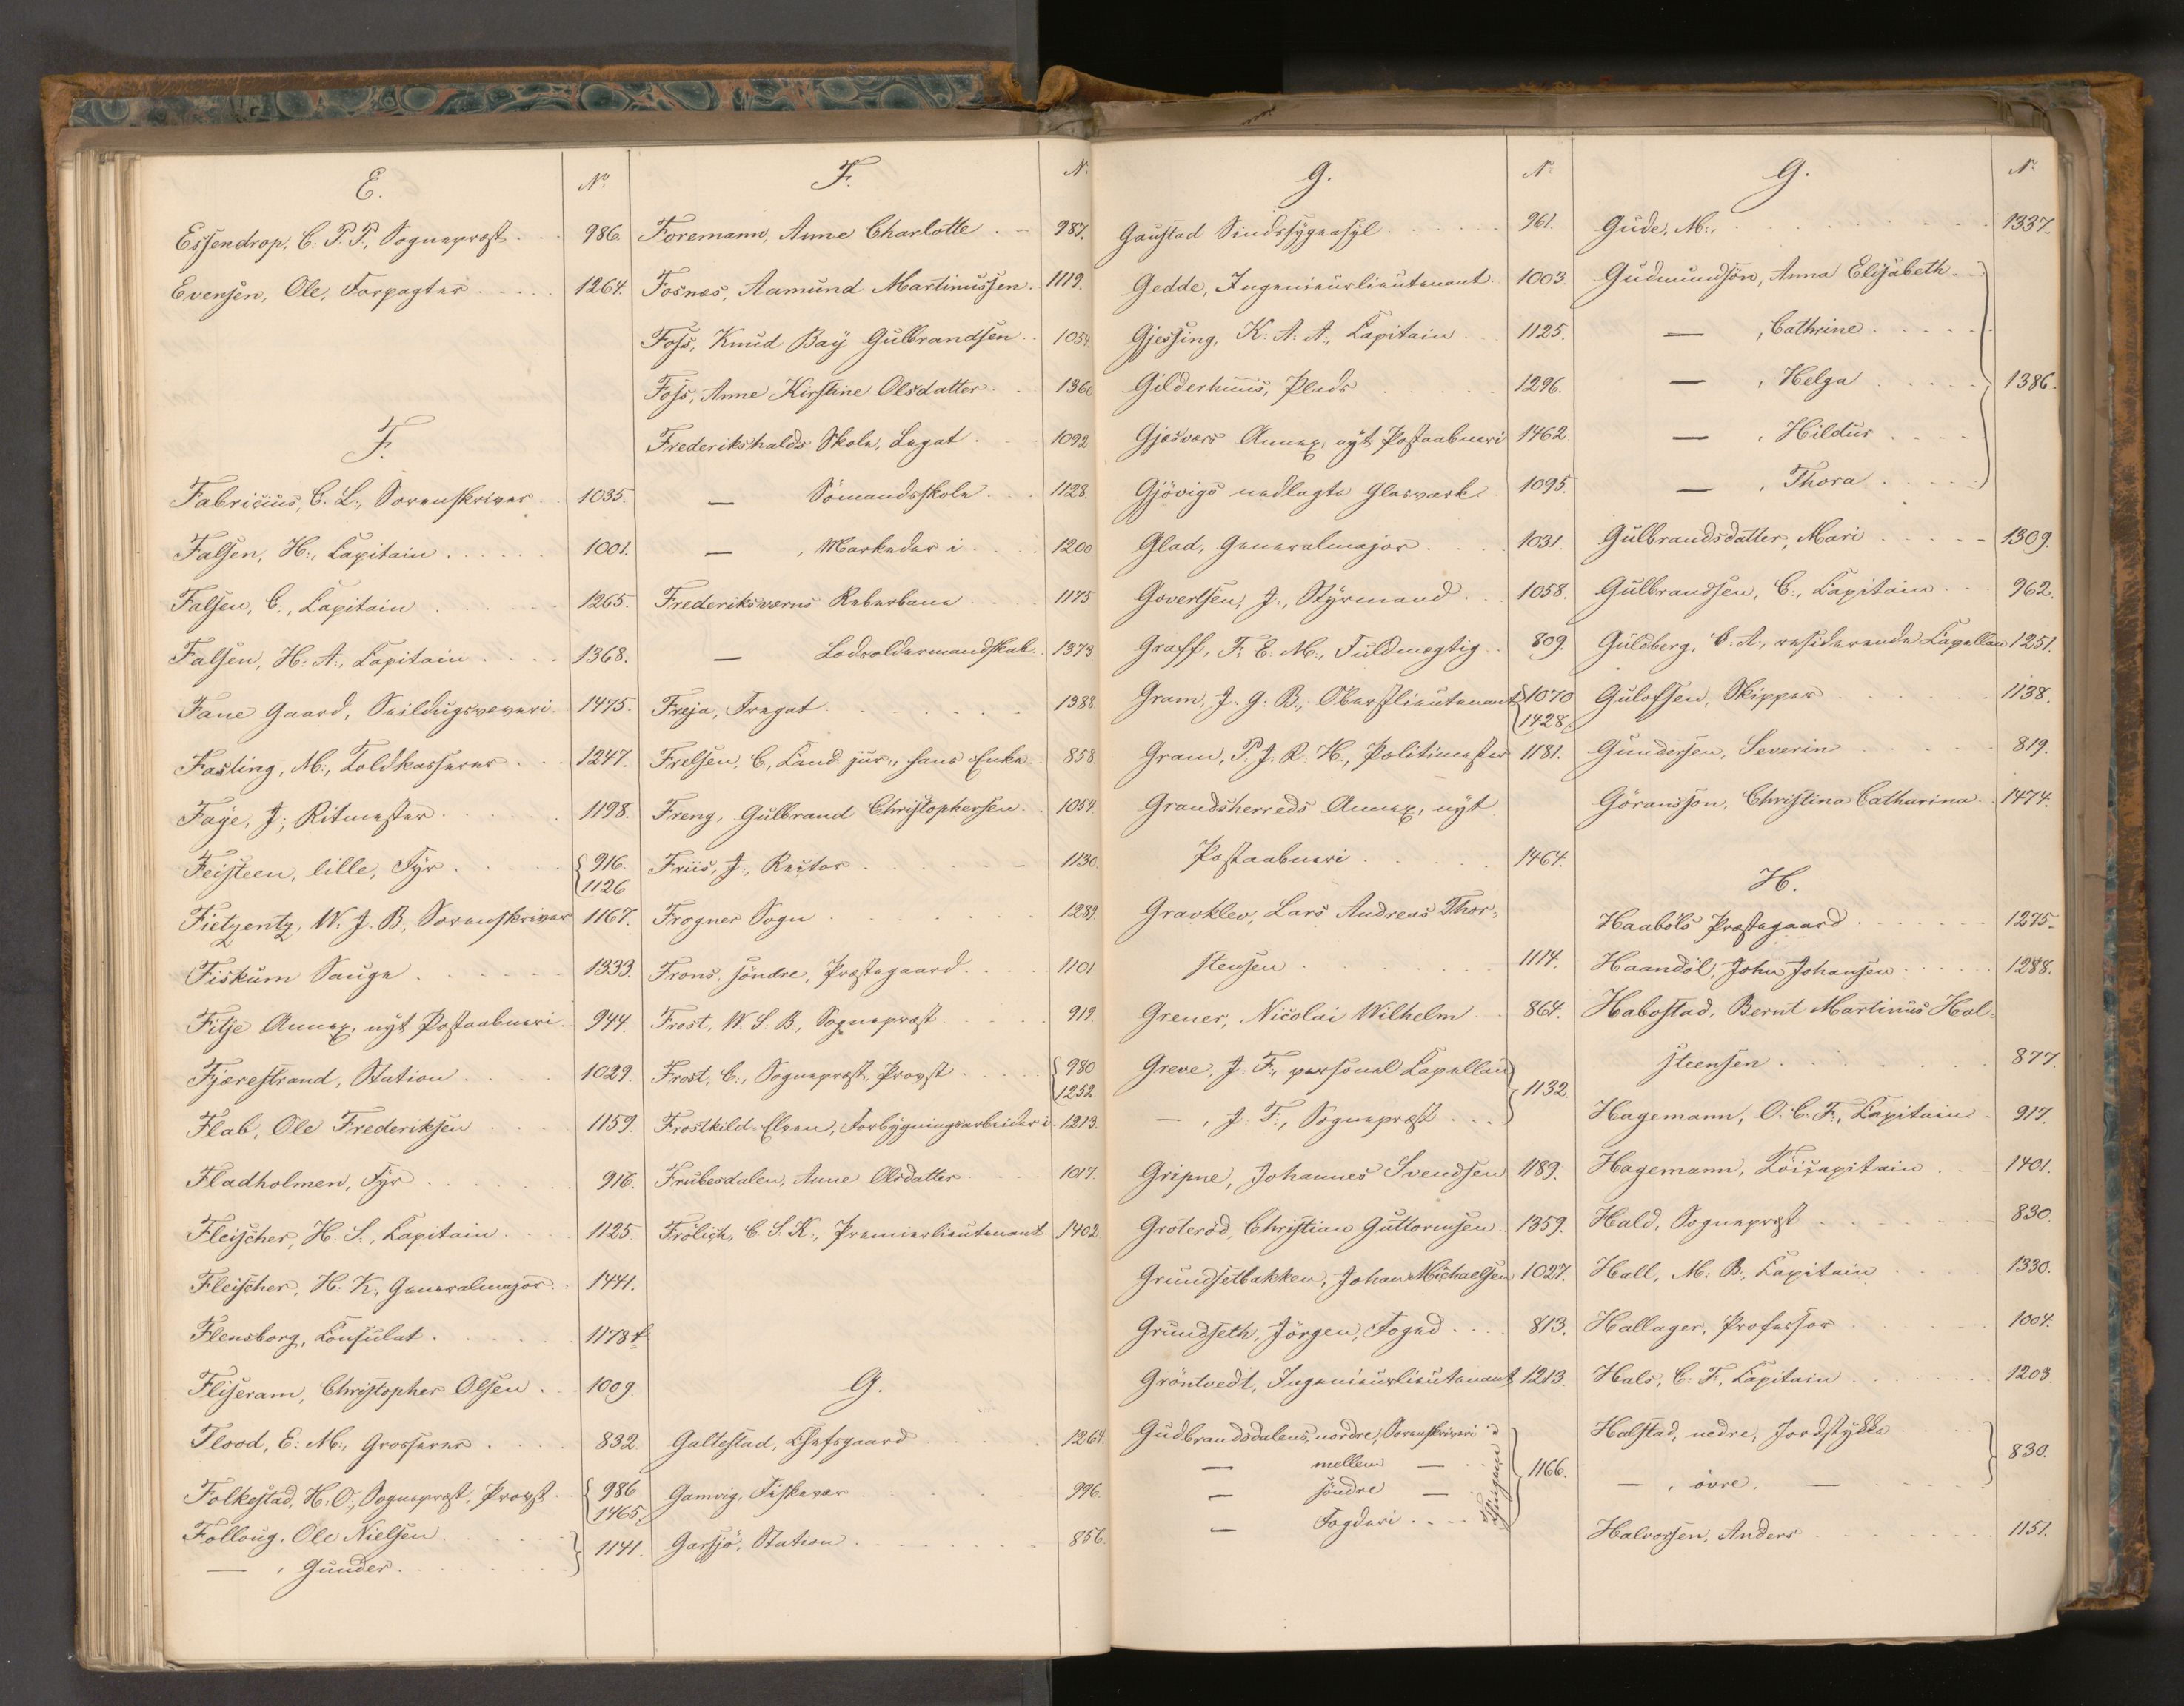 E.
No
Essendrop, C. P. P., Sognepræst . . 986.
Evensen, Ole, Forpagter . . . . 1264.
F.
Fabricius, C. L., Sorenskriver . 1035.
Falsen, H., Capitain . . . . . 1001.
Falsen, C., Capitain . . . . . 1265.
Falsen, H. A., Capitain . . . . 1368.
Fane Gaard, Seildugsveveri . 1475.
Fasting, M., Toldkasserer . . . 1247.
Faye, J., Ritmester . . . . . 1198.
Feisteen, lille, Fyr . . . . { 916.
{ 1126
Fietzentz, W. J. B., Sorenskriver 1167.
Fiskum Sauge . . . . . . 1333.
Fitje Annex, nyt Postaabneri . 944.
Fjærestrand, Station . . . . 1029.
Flab, Ole Frederiksen . . . . 1159.
Fladholmen, Fyr . . . . . . 916.
Fleischer, H. S., Capitain . . . 1125.
Fleischer, H. K., Generalmajor . 1441.
Flensborg, Consulat . . . . . 1178½
Fliseram, Christopher Olsen . . 1009.
Flood, E. M., Grosserer . . . . 832.
Folkestad, H. O., Sognepræst, Provst . { 986
{ 1465.
Folloug, Ole Nielsen . . . . . } 1141.
— , Gunder . . . . . . . }
F.
N.
Foremann, Anne Charlotte . – 987.
Fosnæs, Aamund Martinussen . 1119.
Foss, Knud Bay Gulbrandsen . . 1054.
Foss, Anne Kirstine Olsdatter . . 1360
Frederikshalds Skole, Legat . . 1092
— Sømandsskole . . . 1128.
— , Markeder i . . . . 1200
Frederiksværns Reberbane . . . . 1175
— Lodsoldermandskab . . 1373.
Freja, Fregat . . . . . . 1388
Frelsen, C., Cand. jur., hans Enke . 858
Freng, Gulbrand Christophersen . . 1054.
Friis, J., Rector . . . . . . – 1130
Frogner Sogn . . . . . . . 1289.
Frons, søndre, Præstegaard . . . . 1101
Frost, W. S. B., Sognepræst . . . . 919.
Frost, C., Sognepræst, Provst . . . . { 980
{ 1252.
Frostkild-Elven, Forbygningsarbeider i . 1213.
Frubesdalen, Anne Olsdatter . . . . 1017.
Frölich, C. S. K., Premierlieutenant 1402
G.
Galtestad, Chefsgaard . . . 1264.
Gamvig, Fiskevær . . . . . 996.
Garsjø, Station . . . . . . . 856.
G.
No
Gaustad Sindssygeasyl . . . . . . 961.
Gedde, Ingenieurlieutenant . 1003.
Gjessing, K. A. A., Capitain . . 1125.
Gilderhuus, Plads . . . . . 1296.
Gjesvær Annex, nyt Postaabneri 1462.
Gjövigs nedlagte Glasværk . 1095.
Glad, Generalmajor . . . . 1031.
Govertsen, J., Styrmand . . . 1058.
Graff, F. E. M., Fuldmægtig . . 809.
Gram, J. G. B., Oberstlieutenant { 1070
{ 1428.
Gram, P. J. R. H., Politimester 1181.
Grandsherreds Annex, nyt
Postaabneri . . . . . 1464.
Gravklev, Lars Andreas Thor-
stensen . . . . . . 1114.
Grener, Nicolai Wilhelm . . 864.
Greve, J. F., personel Capellan } 1132.
— , J. F., Sognepræst . . . }
Gripne, Johannes Svendsen 1189.
Gröteröd, Christian Guttormsen . 1359.
Grundsetbakken, Johan Michaelsen 1027.
Grundseth, Jörgen, Foged . . . . 813.
Gröntvedt, Ingenieurlieutenant 1213.
Gudbrandsdalens, nordre, Sorenskriveri
— mellem — . . . } 1166.
— søndre —
— Fogderi . . . .
G.
No
Gude, M., . . . . . . . . . 1337.
Gudmundsön, Anna Elisabeth . . }
— , Cathrine . . . . .
— , Helga . . . . . } 1386.
— , Hildur . . . .
— , Thora . . . . . }
Gulbrandsdatter, Mari . . . . – 1309.
Gulbrandsen, C., Capitain . . . 962.
Guldberg, C. A., residerende Capellan 1251.
Gulofsen, Skipper . . . . . . . 1138.
Gundersen, Severin . . . . . 819.
Göransson, Christina Catharina . . 1474.
H.
Haaböls Præstegaard . . . . . . 1275.
Haandöl, John Johansen . . . . . 1288.
Habostad, Bernt Martinius Hal-
steensen . . . . . . . . 877.
Hagemann, O. C. F., Capitain . 917.
Hagemann, Töicapitain . . . 1401.
Hald, Sognepræst . . . . . . – 830.
Hall, M. B., Capitain . . . . 1330.
Hallager, Professor . . . . . 1004.
Hals, C. F., Capitain . . . . . . 1203.
Halstad, nedre, Jordstykke . . . . } 830.
— , øvre, — . . . . }
Halvorsen, Anders . . . . . . . . 1151.